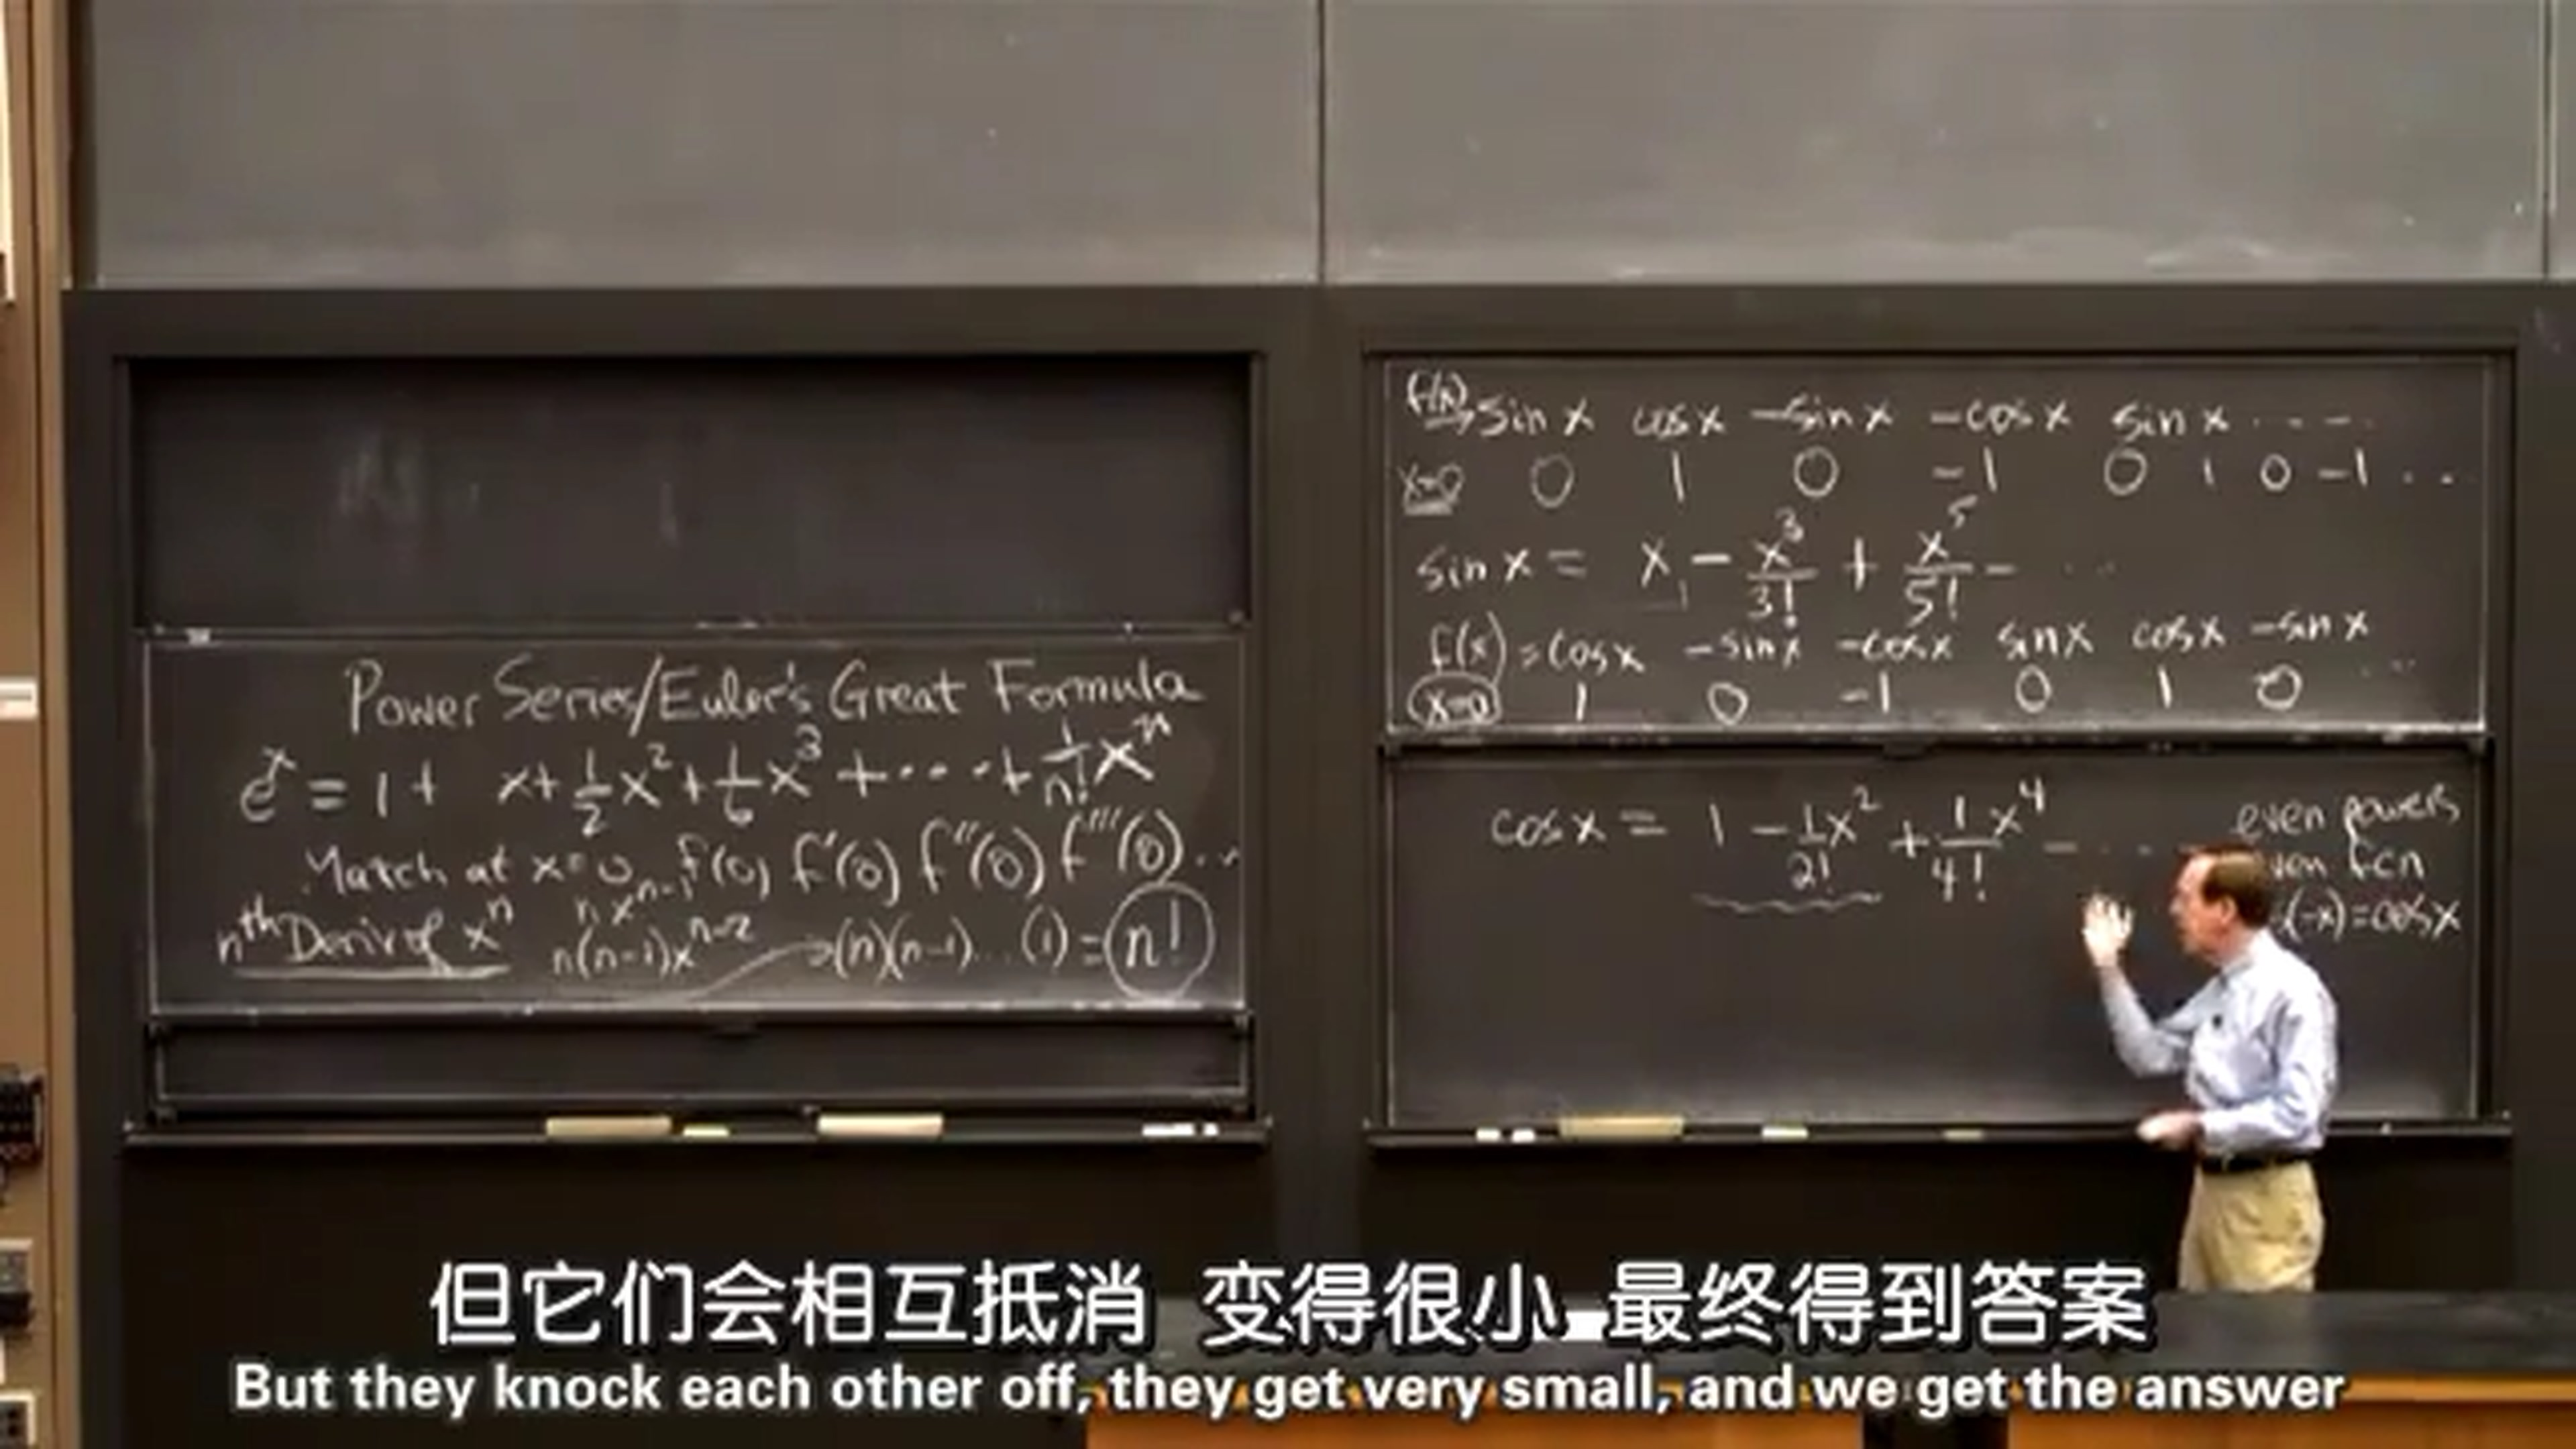 Power Series/Euler's Great Formula
e^x = 1 + x + 1/2 x^2 + 1/6 x^3 + ··· + 1/n! x^n
Match at x=0 f(0) f'(0) f''(0) f'''(0) ...
nth Deriv of x^n nx^{n-1} n(n-1)x^{n-2} → (n)(n-1)...(1) = n!
f(x) → sin x cos x -sin x -cos x sin x ....
x=0 0 1 0 -1 0 1 0 -1 ...
sin x = x - x^3/3! + x^5/5! - ...
f(x) = cos x -sin x -cos x sin x cos x -sin x
x=0 1 0 -1 0 1 0 ...
cos x = 1 - 1/2! x^2 + 1/4! x^4 - ...
even powers
fcn
(-x) = cos x
但它们会相互抵消 变得很小 最终得到答案
But they knock each other off, they get very small, and we get the answer